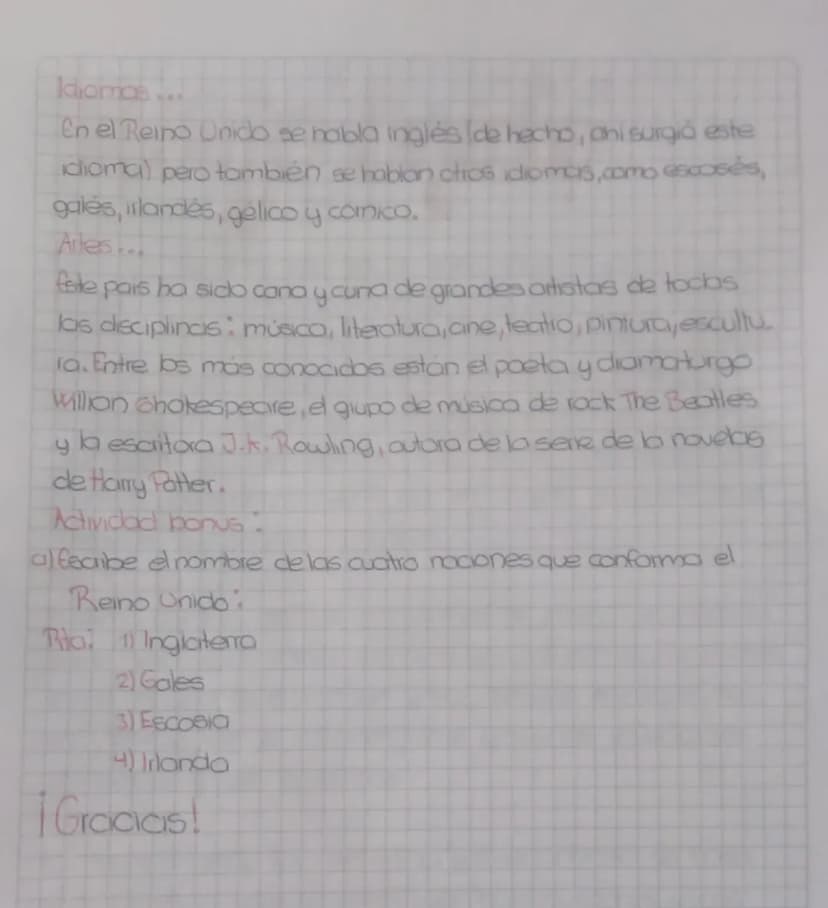 Idiomas...
En el Reino Unido se habla inglés (de hecho, ahí surgió este
idioma) pero también se hablan otros idiomas, como escosés,
galés, irlandés, gélico y córnico.
Artes...
Este país ha sido cana y cuna de grandes artistas de todas
las disciplinas: música, literatura, cine, teatro, pintura, escultu-
ra. Entre los más conocidos están el poeta y dramaturgo
Willian Shakespeare, el grupo de música de rock The Beatles
y la escritora J.K. Rowling, autora de la serie de la novelas
de Harry Potter.
Actividad bonus:
a) Escribe el nombre de las cuatro naciones que conforma el
Reino Unido:
Rta: 1) Inglaterra
2) Gales
3) Escosia
4) Irlanda
¡Gracias!